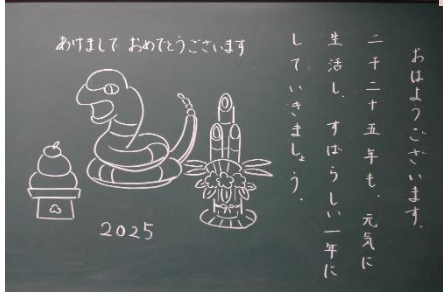 あけましておめでとうございます
おはようございます.
二千二十五年も、元気に
生活し、すばらしい一年に
していきましょう.
2025